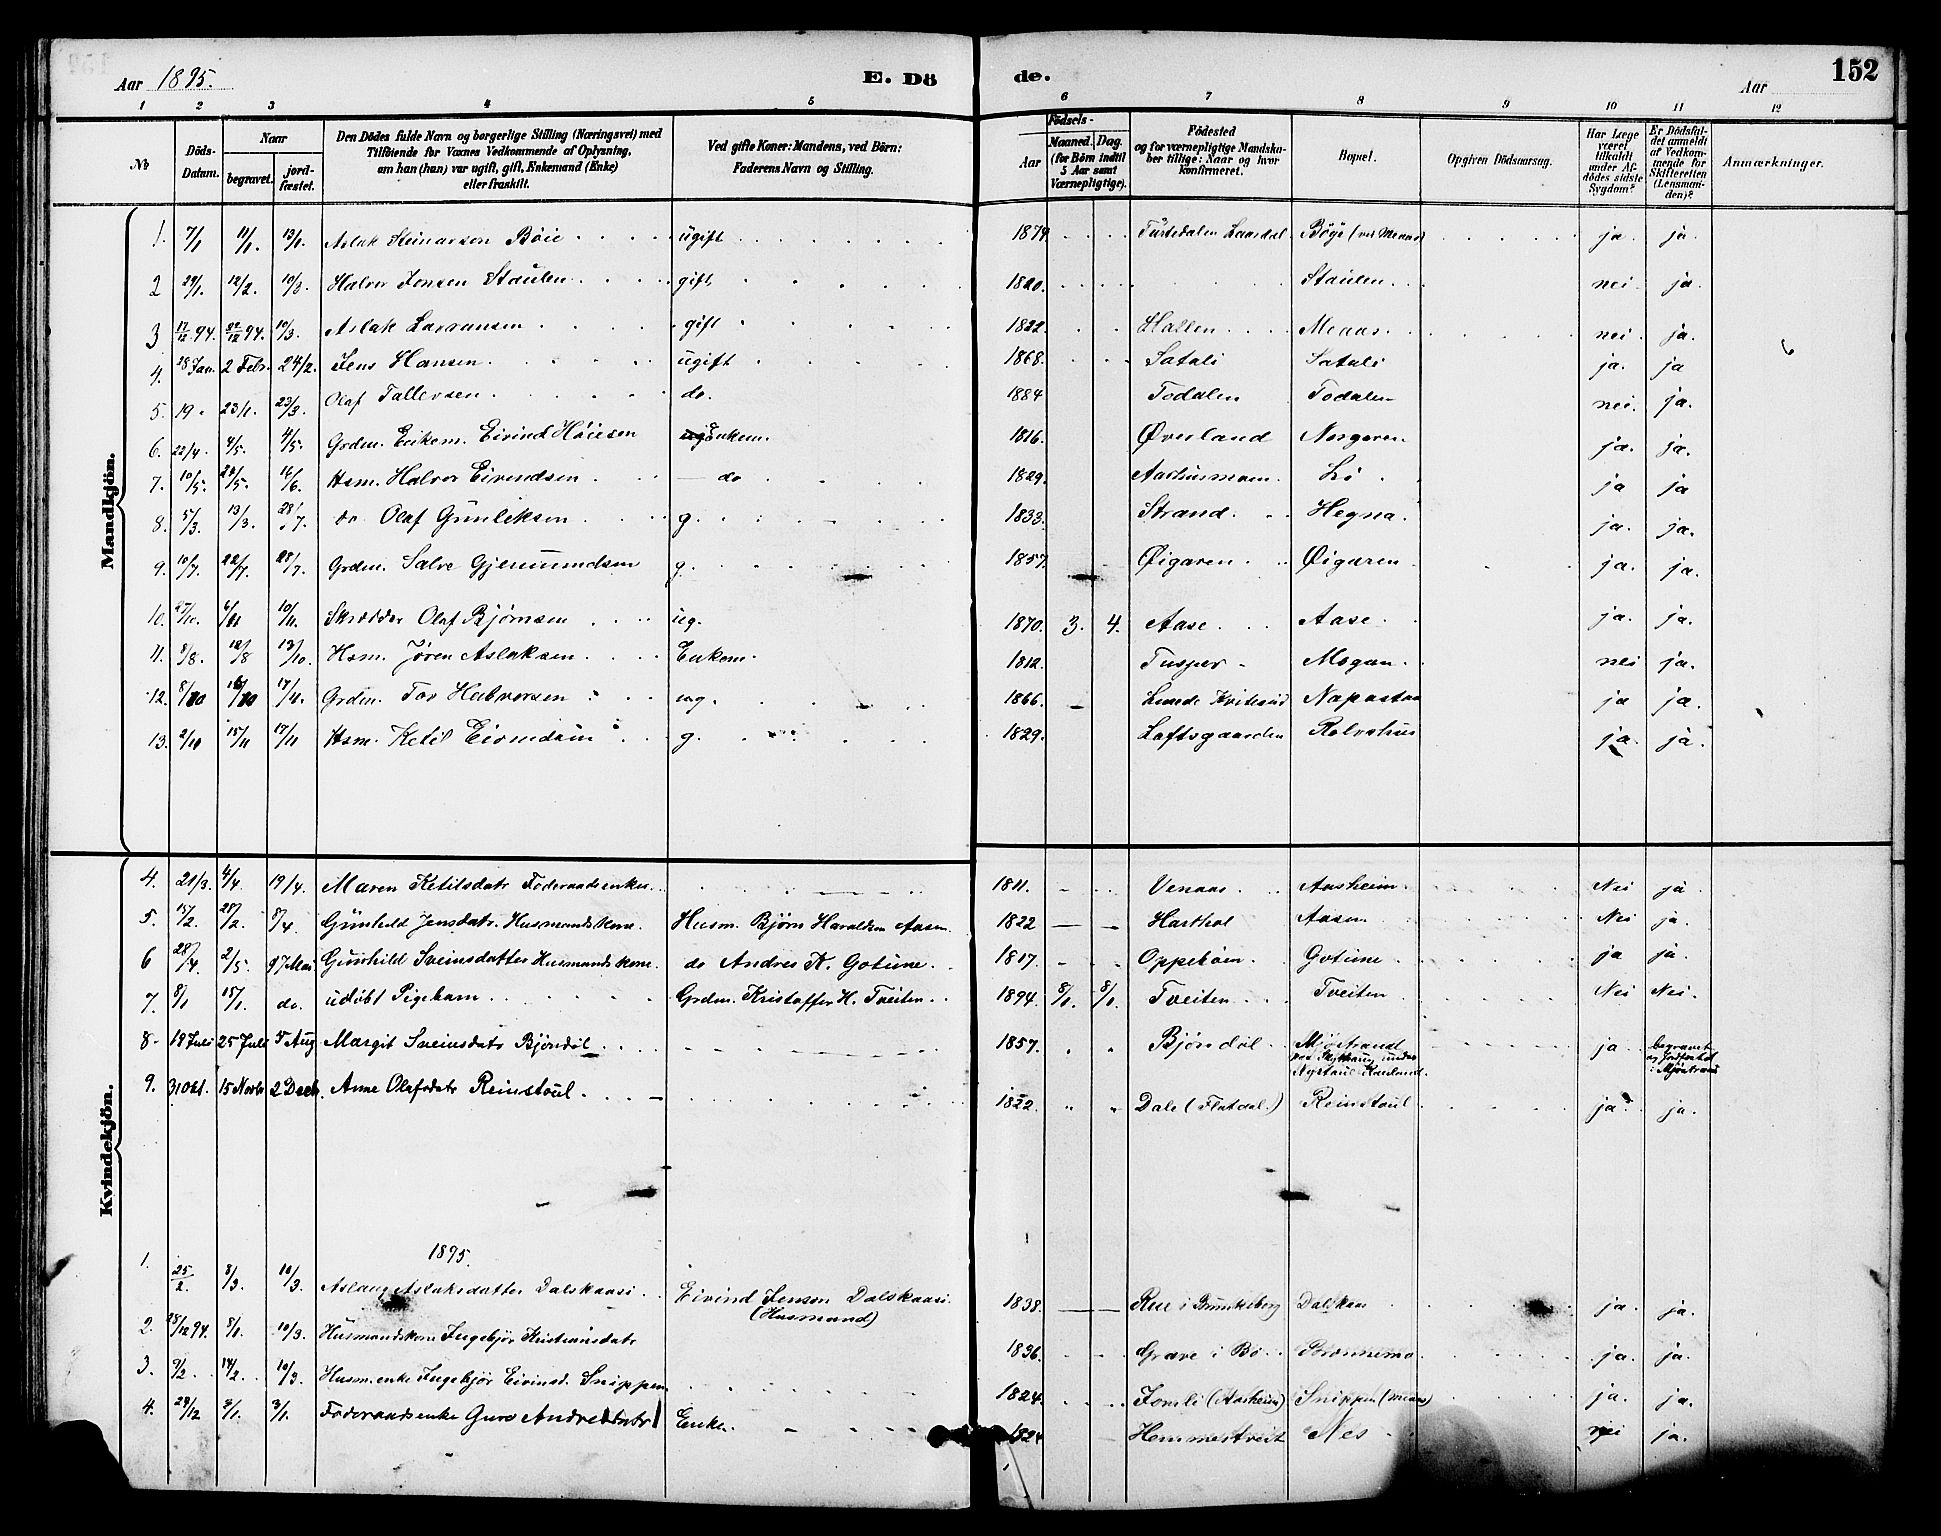 Aar 1895. E. Dö de. Aar 152
1 2 3 4 5 6 7 8 9 10 11 12
No
Döds-Datum.
Naar
begravet.
jordfæstet.
Den Dödes fulde Navn og borgerlige Stilling (Næringsvei) med
Tilföiende for Voxnes Vedkommende af Oplysning,
om han (hun) var ugift, gift, Enkemand (Enke)
eller fraskilt.
Ved gifte Koner: Mandens, ved Börn:
Faderens Navn og Stilling.
Födsels-
Aar
Maaned. Dag.
(for Börn indtil
5 Aar samt
Værnepligtige).
Födested
og for værnepligtige Mandska-
ber tillige: Naar og hvor
konfirmeret.
Bopæl.
Opgiven Dödsaarsag.
Har Læge
været
tilkaldt
under Af-
dödes sidste
Sygdom?
Er Dödsfal-
det anmeldt
af Vedkom-
mende for
Skifteretten
(Lensman-
den)?
Anmærkninger.
Mandkjön.
1. 7/1 11/1 13/1 Aslak Steinarson Böie ugift 1879 Laardal Böge ja ja
2 29/1 12/2 10/3 Halvor Jonsen Staulen gift 1820 Staulen nei ja
3 17/12 94. 22/12 94. 10/3 Aslak gift 1822 Hallen Meaas nei ja.
4. 28 Jan. 2 Febr. 24/2. Jens Hansen ugift 1868 Satali Satali ja. ja
5. 19 23/1 23/3. Olaf Tallevsen do. 1884 Todalen Todalen nei. ja.
6. 22/4 4/5. 4/5 Grdm. Enkem. Eivind Enkem. 1816 Øverland Norgaren ja. ja.
7. 10/5. 24/5. 16/6 Hsm. Halvor Eivindsen do 1829 ja ja
8. 5/3 13/3 28/7. do Olaf Gunleiksen g. 1833 Strand Hegna ja. ja.
9. 10/7. 22/7. 28/7. Grdm. Salve Gjermundsen g. 1857 Øigaren Øigaren ja. ja.
10. 27/10. 6/11 10/11. Skrædder Olaf Bjørnsen ug. 1870. 3. 4. Aase Aase ja. ja.
11. 8/8. 12/8 13/10. Hsm. Jøren Aslaksen Enkem. 1812. Mogan nei ja.
12. 8/10 16/10 17/11. Grdm. Tov Halvorsen ug. 1866. Lunde Kviteseid ja ja.
13. 2/11 15/11 17/11 Hsm. Ketil g. 1829. Loftsgaarden Rolvshus ja. ja.
Kvindekjön.
4. 21/3. 4/4. 19/4. Maren Ketilsdatr Föderaadsenke 1811. Venaas Aasheim Nei ja
5. 15/2. 28/2 8/4. Gunhild Jensdatr. Husmandskone Husm. Bjørn Haraldsen Aasen 1822 Aasen Nei ja.
6 28/4. 2/5. 97 Mai Gunhild Sveinsdatter Husmandskone. do Andres K. Gotune 1817. Oppeböen Gotune ja ja.
7. 8/1 15/1. do. udöbt Pigebarn Grdm. Kristoffer H. Tveiten 1894. 8/1. 8/1. Tveiten Tveiten Nei Nei.
8. 18 Juli 25 Juli 5 Aug Margit Sveinsdatr Bjöndöl 1857. Bjöndöl Mjöstrandt ja begravet
og Jordfæstet
i Mjöstrand
9. 31 Okt. 15 Novbr 2 Decb. Anne Olafsdatr Reinstöul 1822. Dale (Flatdal.) Reinstöul ja. ja.
1895.
1. 25/2. 8/3. 10/3. Aslaug Aslaksdatter Dalskaasi Eivind Jenson Dalskaasi.
(Husmand) 1838. Rue i Brunkeberg Dalskaas ja. ja.
2. 28/12 94. 8/1. 10/3. Husmandskone Ingebjör Kristiansdatr 1836. Grave i Bö ja. ja.
3. 9/2. 14/2. 10/3. Husm.enke Ingebjör Eivinsd. Snippen 1824. Jonli (Aasheim) Snippen (Meaas) ja. ja.
4. 29/12 3/1. 3/1. Föderaadsenke Guro Andresdatr Enke. 1824 Hemmestveit Nes nei ja.